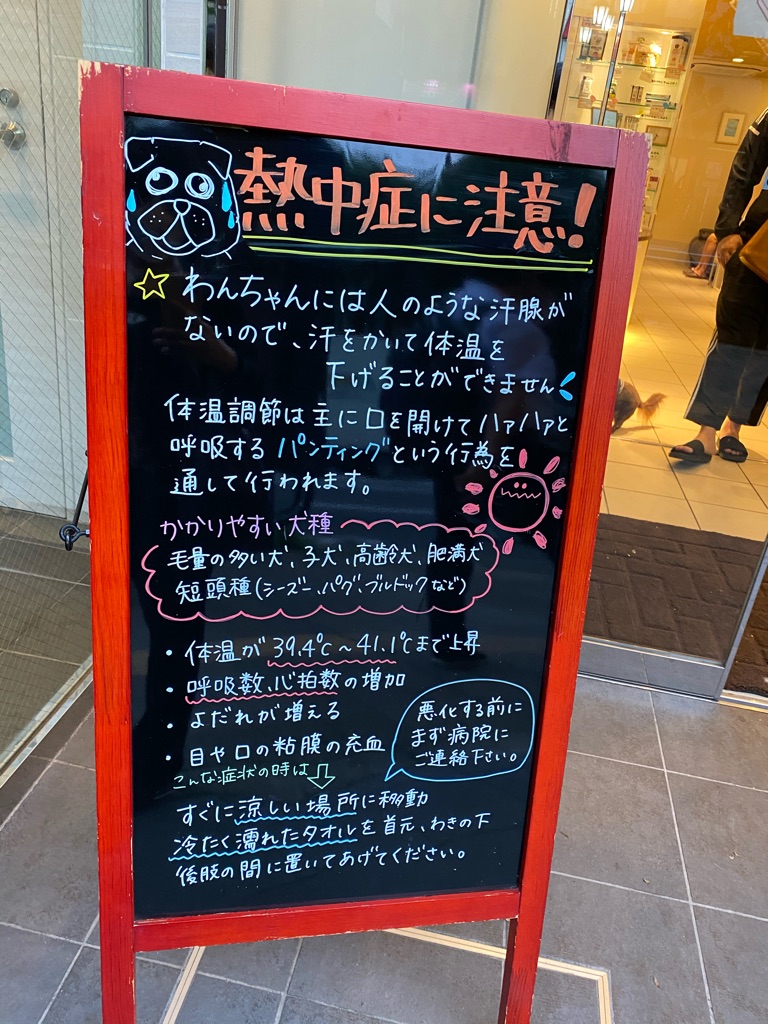 熱中症に注意!
☆ わんちゃんには人のような汗腺が
ないので、汗をかいて体温を
下げることができません
体温調節は主に口を開けてハァハァと
呼吸する パンティングという行為を
通して行われます。
かかりやすい犬種
毛量の多い犬、子犬、高齢犬、肥満犬
短頭種(シーズー、パグ、ブルドックなど)
・体温が39.4℃〜41.1℃まで上昇
・呼吸数、心拍数の増加
・よだれが増える
・目や口の粘膜の充血
悪化する前に
まず病院に
ご連絡下さい。
こんな症状の時は
すぐに涼しい場所に移動
冷たく濡れたタオルを首元、わきの下
後肢の間に置いてあげてください。